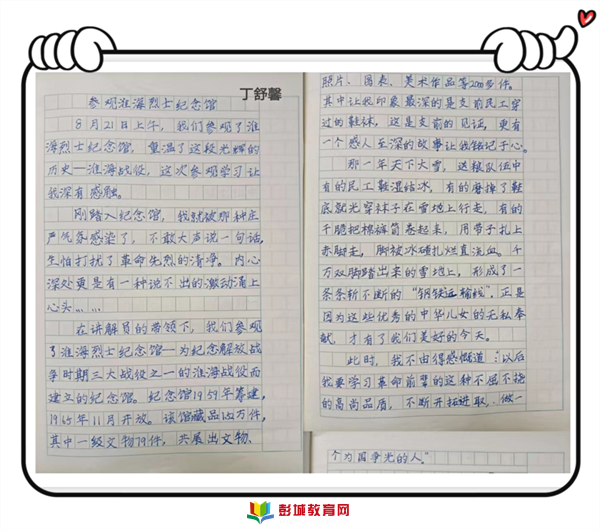 参观淮海烈士纪念馆
丁舒馨
8月21日上午，我们参观了淮
海烈士纪念馆，重温了这段光辉的
历史—淮海战役，这次参观学习让
我深有感触。
刚踏入纪念馆，我就被那种庄
严气氛感染了，不敢大声说一句话，
生怕打扰了革命先烈的清净。内心
深处更是有一种说不出的激动涌上
心头……
在讲解员的带领下，我们参观
了淮海烈士纪念馆—为纪念解放战
争时期三大战役之一的淮海战役而
建立的纪念馆。纪念馆1959年筹建，
1965年11月开放。该馆藏品1.52万件，
其中一级文物79件，共展出文物、
照片、图表、美术作品等2000多件。
其中让我印象最深的是支前民工穿
过的鞋袜，这是支前的见证，更有
一个感人至深的故事让我铭记于心。
那一年天下大雪，送粮队伍中
有的民工鞋湿结冰，有的磨掉了鞋
底就光穿袜子在雪地上行走，有的
干脆把棉裤筒卷起来，用带子扎上
赤脚走，脚被冰碴扎烂直流血。千
万双脚踏出来的雪地上，形成了一
条条斩不断的“钢铁运输线”，正是
因为这些优秀的中华儿女的无私奉
献，才有了我们美好的今天。
此时，我不由得感慨道：“以后
我要学习革命前辈的这种不屈不挠
的高尚品质，不断开拓进取，做一
个为国争光的人。”
彭城教育网